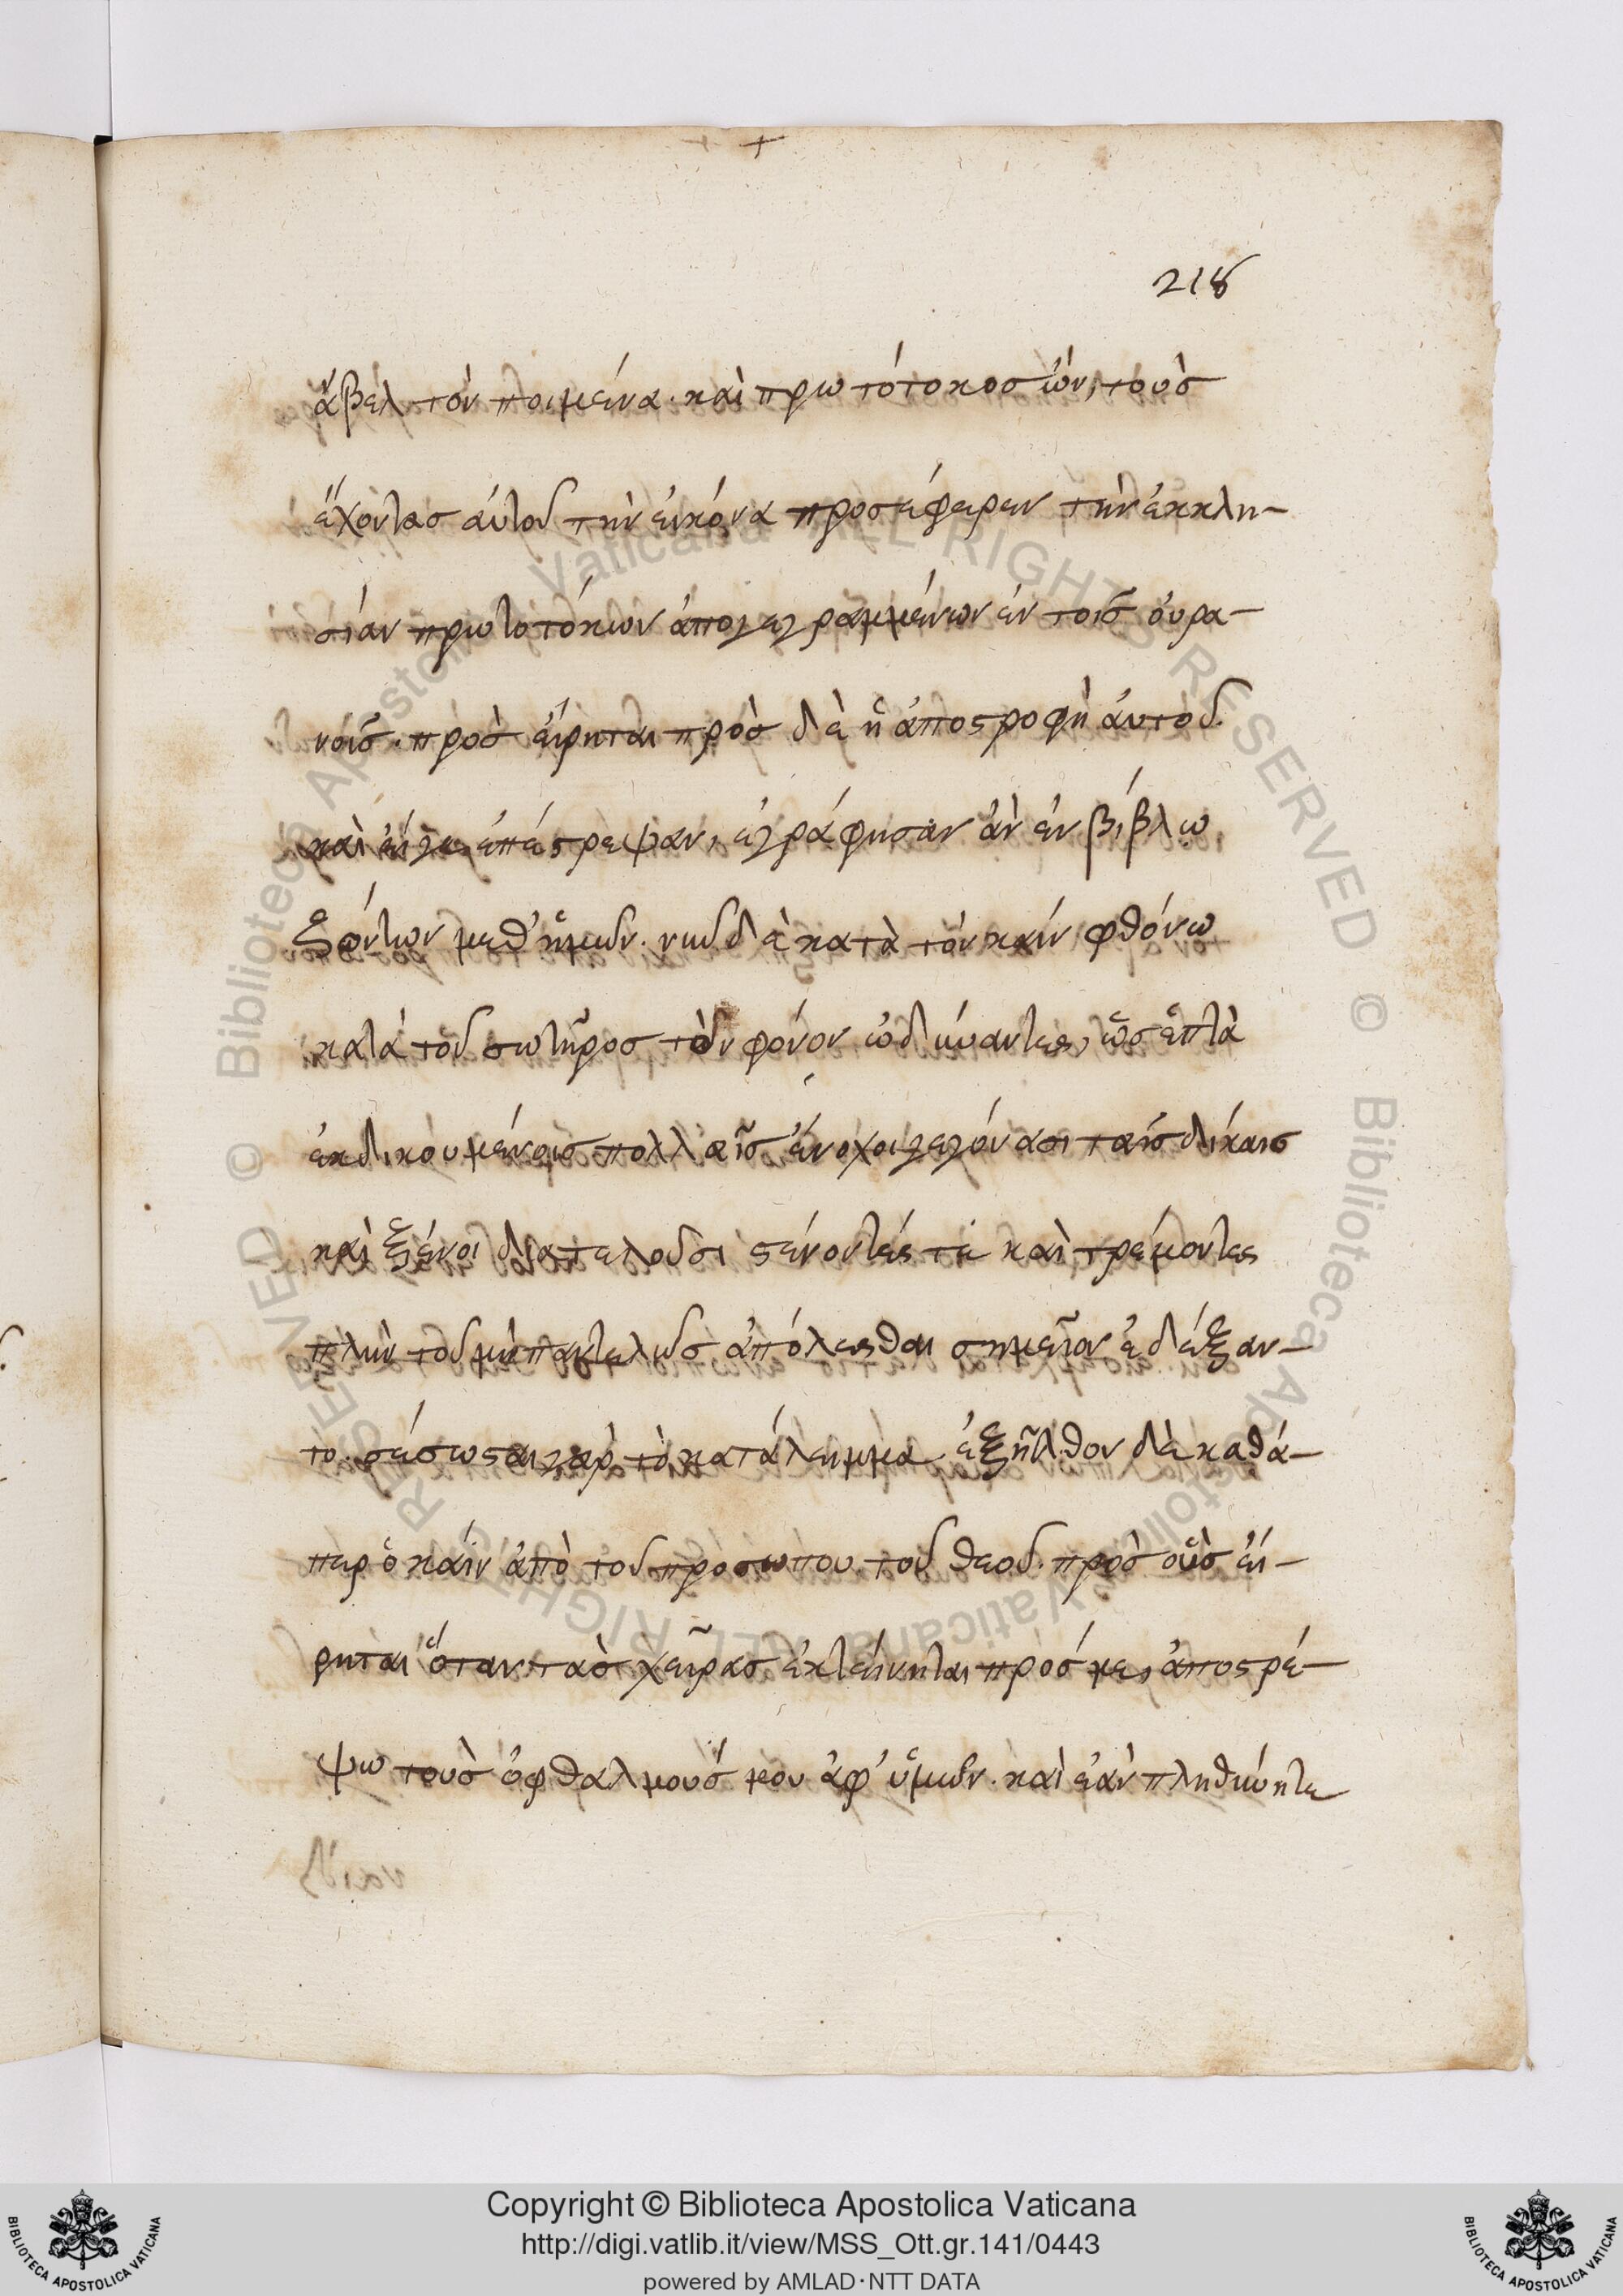 218
ἄβελ τὸν ποιμένα. καὶ πρωτότοκος ὢν, τοὺς
ἔχοντας αὐτοῦ τὴν εἰκόνα προσέφερεν τὴν ἐκκλη-
σίαν πρωτοτόκων ἀπογεγραμμένων ἐν τοῖς οὐρα-
νοῖς. πρὸς εἴρηται πρὸς δὲ ἡ ἀποστροφὴ αὐτοῦ.
καὶ εἴγε ἐπέστρεψαν, ἐγράφησαν ἂν ἐν βίβλω
ζώντων μεθ' ἡμῶν. νῦν δὲ κατὰ τὸν κάϊν φθόνω
κατὰ τοῦ σωτῆρος τὸν φόνον ὠδινύαντες, ὡς ἑπτὰ
ἐκδικουμένοις πολλαῖς ἔνοχοι γεγόνασι ταῖς δίκαις
καὶ ξένοι διατελοῦσι στένοντές τε καὶ τρέμοντες
πλὴν τοῦ μὴ παντελῶς ἀπόλεσθαι σημεῖον ἐδέξαν-
το. σέσωσαι γὰρ τὸ κατάλειμμα. ἐξῆλθον δὲ καθά-
περ ὁ κάϊν ἀπὸ τοῦ προσωπου τοῦ θεοῦ. πρὸς οὓς εἴ-
ρηται ὅταν τὰς χεῖρας ἐκτείνηται πρός με, ἀποστρέ-
ψω τοὺς ὀφθαλμούς μου ἀφ' ὑμῶν. καὶ ἐὰν πληθύνητε
© Biblioteca Apostolica Vaticana ALL RIGHTS RESERVED © Biblioteca Apostolica Vaticana ALL RIGHTS RESERVED
BIBLIOTECA APOSTOLICA VATICANA
Copyright © Biblioteca Apostolica Vaticana
http://digi.vatlib.it/view/MSS_Ott.gr.141/0443
powered by AMLAD·NTT DATA
BIBLIOTECA APOSTOLICA VATICANA